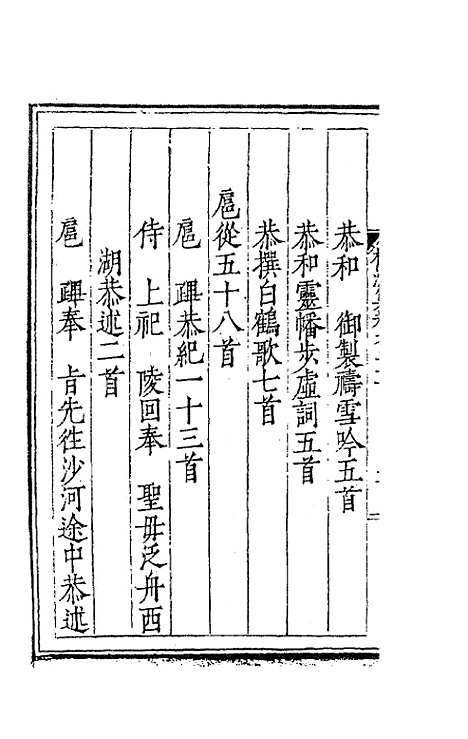 恭和　御製禱雪吟五首
恭和靈幡步虛詞五首
恭撰白鶴歌七首
扈從五十八首
扈　蹕恭紀一十三首
侍　上祀　陵回奉　聖母泛舟西
湖恭述二首
扈　蹕奉　旨先往沙河途中恭述